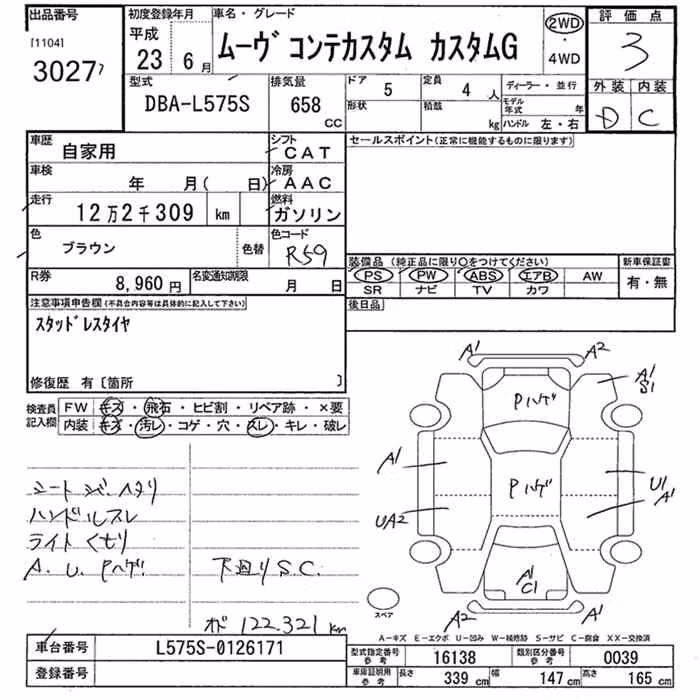 出品番号
[1104]
3027
初度登録年月
平成
23 6月
車名・グレード
ムーヴ コンテカスタム カスタムG
2WD
・
4WD
評価点
3
外装 内装
D C
型式
DBA-L575S
排気量
658
CC
ドア 5
形状
定員 4 人
積載 kg
ディーラー・並行
モデル年式 年
ハンドル 左・右
車歴
自家用
シフト
CAT
車検
年 月( 日)
冷房
AAC
走行
12万2千309 km
燃料
ガソリン
色
ブラウン
色替
色コード
R59
R券
8,960円
名変通知期限
月 日
セールスポイント(正常に機能するものに限ります)
装備品 (純正品に限り○をつけてください)
PS PW ABS エアB AW
SR ナビ TV カワ
新車保証書
有・無
後日品
注意事項申告欄(不具合内容等は具体的に記入して下さい)
スタッドレスタイヤ
修復歴 有〔箇所 〕
検査員
記入欄
FW キズ・飛石・ヒビ割・リペア跡・×要
内装 キズ・汚レ・コゲ・穴・スレ・キレ・破レ
シートシバ、ヘタリ
ハンドルスレ
ライトくもり
A.U.Pハゲ
下回りS.C.
オド 122.321 km
A1 A2
A1
S1
Pハゲ
A1
Pハゲ
U1
A1
UA2
A1
C1
A2 A1
スペア
A-キズ E-エクボ U-凹み W-補修跡 S-サビ C-腐食 XX-交換済
車台番号
L575S-0126171
登録番号
型式指定番号
参考
16138
類別区分番号
参考
0039
車庫証明用
参考
長さ 339 cm
幅 147 cm
高さ 165 cm